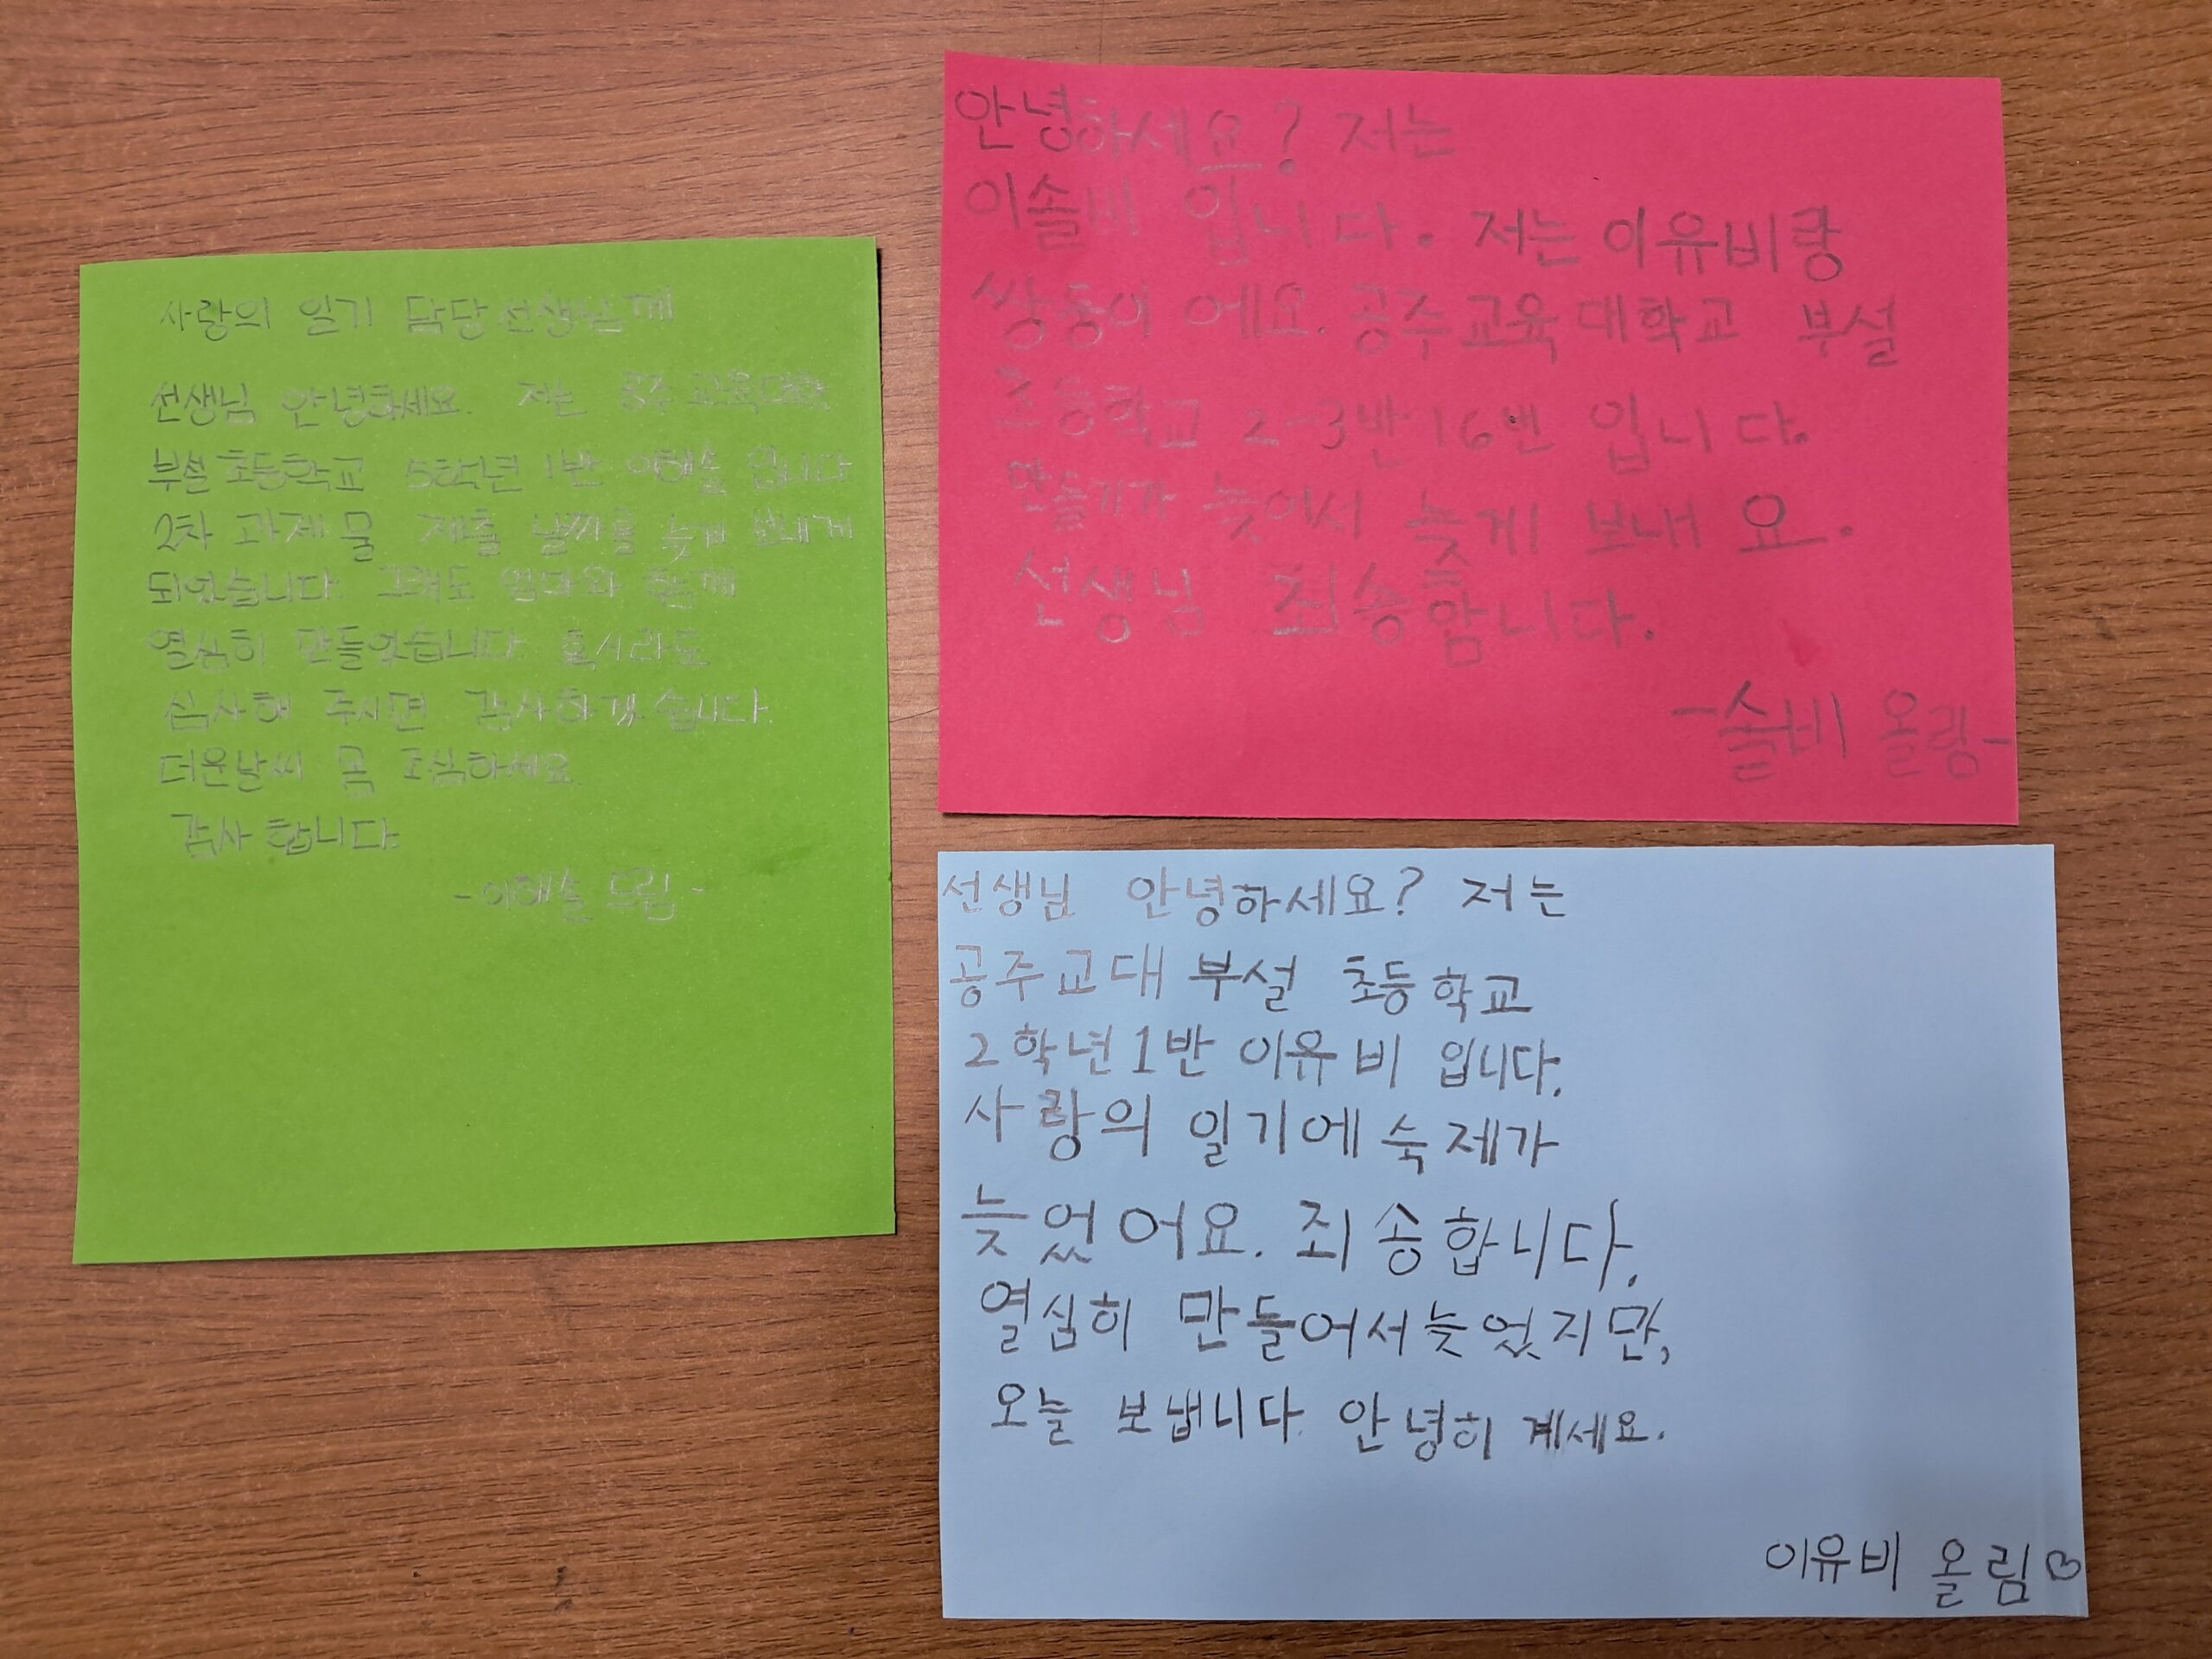 사랑의 일기 담당선생님께
선생님 안녕하세요. 저는 공주교육대학
부설초등학교 5학년 1반 이해솔 입니다
2차 과제물 제출 날짜를 늦게 보내게
되었습니다. 그래도 엄마와 함께
열심히 만들었습니다. 혹시라도
심사해 주시면 감사하겠습니다.
더운날씨 몸 조심하세요.
감사합니다.
-이해솔 드림-
안녕하세요? 저는
이솔비 입니다. 저는 이유비랑
쌍둥이 에요. 공주교육대학교 부설
초등학교 2-3반 16번 입니다.
만들기가 늦어서 늦게 보내요.
선생님 죄송함니다.
-솔비 올림-
선생님 안녕하세요? 저는
공주교대 부설 초등학교
2학년1반 이유비 입니다.
사랑의 일기에 숙제가
늦었어요. 죄송합니다.
열심히 만들어서늦었지만,
오늘 보냅니다. 안녕히 계세요.
이유비 올림♡